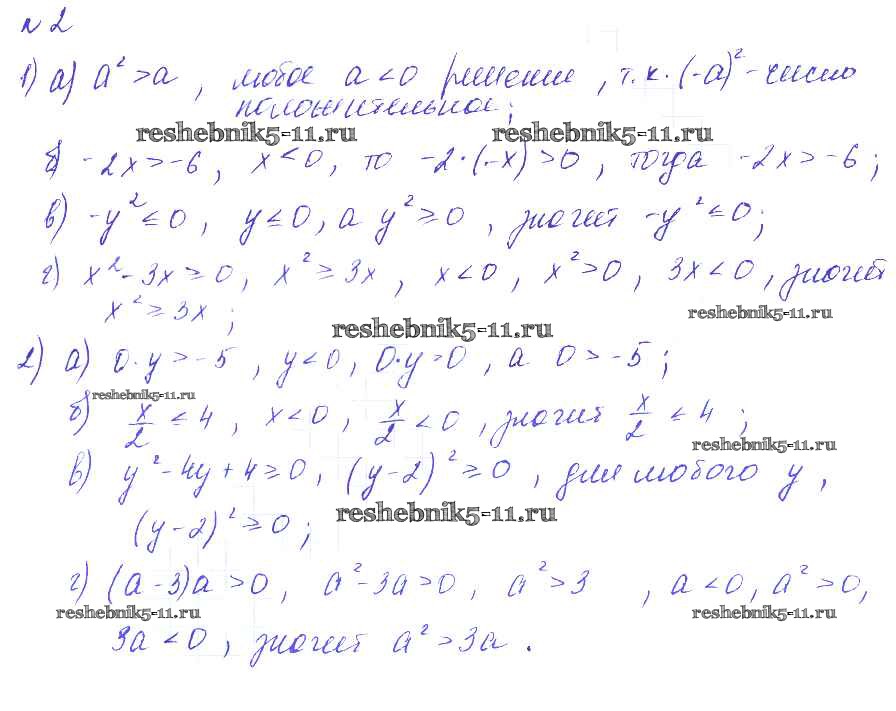 № 2
1) а) a² > a, любое a < 0 решение, т.к. (-a)² - число
положительное;
reshebnik5-11.ru reshebnik5-11.ru
б) -2x > -6, x < 0, то -2·(-x) > 0, тогда -2x > -6;
в) -y² ≤ 0, y ≤ 0, а y² ≥ 0, значит -y² ≤ 0;
г) x² - 3x ≥ 0, x² ≥ 3x, x < 0, x² > 0, 3x < 0, значит
x² ≥ 3x;
reshebnik5-11.ru
reshebnik5-11.ru
2) а) 0·y > -5, y < 0, 0·y = 0, а 0 > -5;
reshebnik5-11.ru
б) x/2 ≤ 4, x < 0, x/2 < 0, значит x/2 ≤ 4;
reshebnik5-11.ru
в) y² - 4y + 4 ≥ 0, (y - 2)² ≥ 0, для любого y,
reshebnik5-11.ru
(y - 2)² ≥ 0;
г) (a - 3)a > 0, a² - 3a > 0, a² > 3, a < 0, a² > 0,
reshebnik5-11.ru reshebnik5-11.ru
3a < 0, значит a² > 3a.